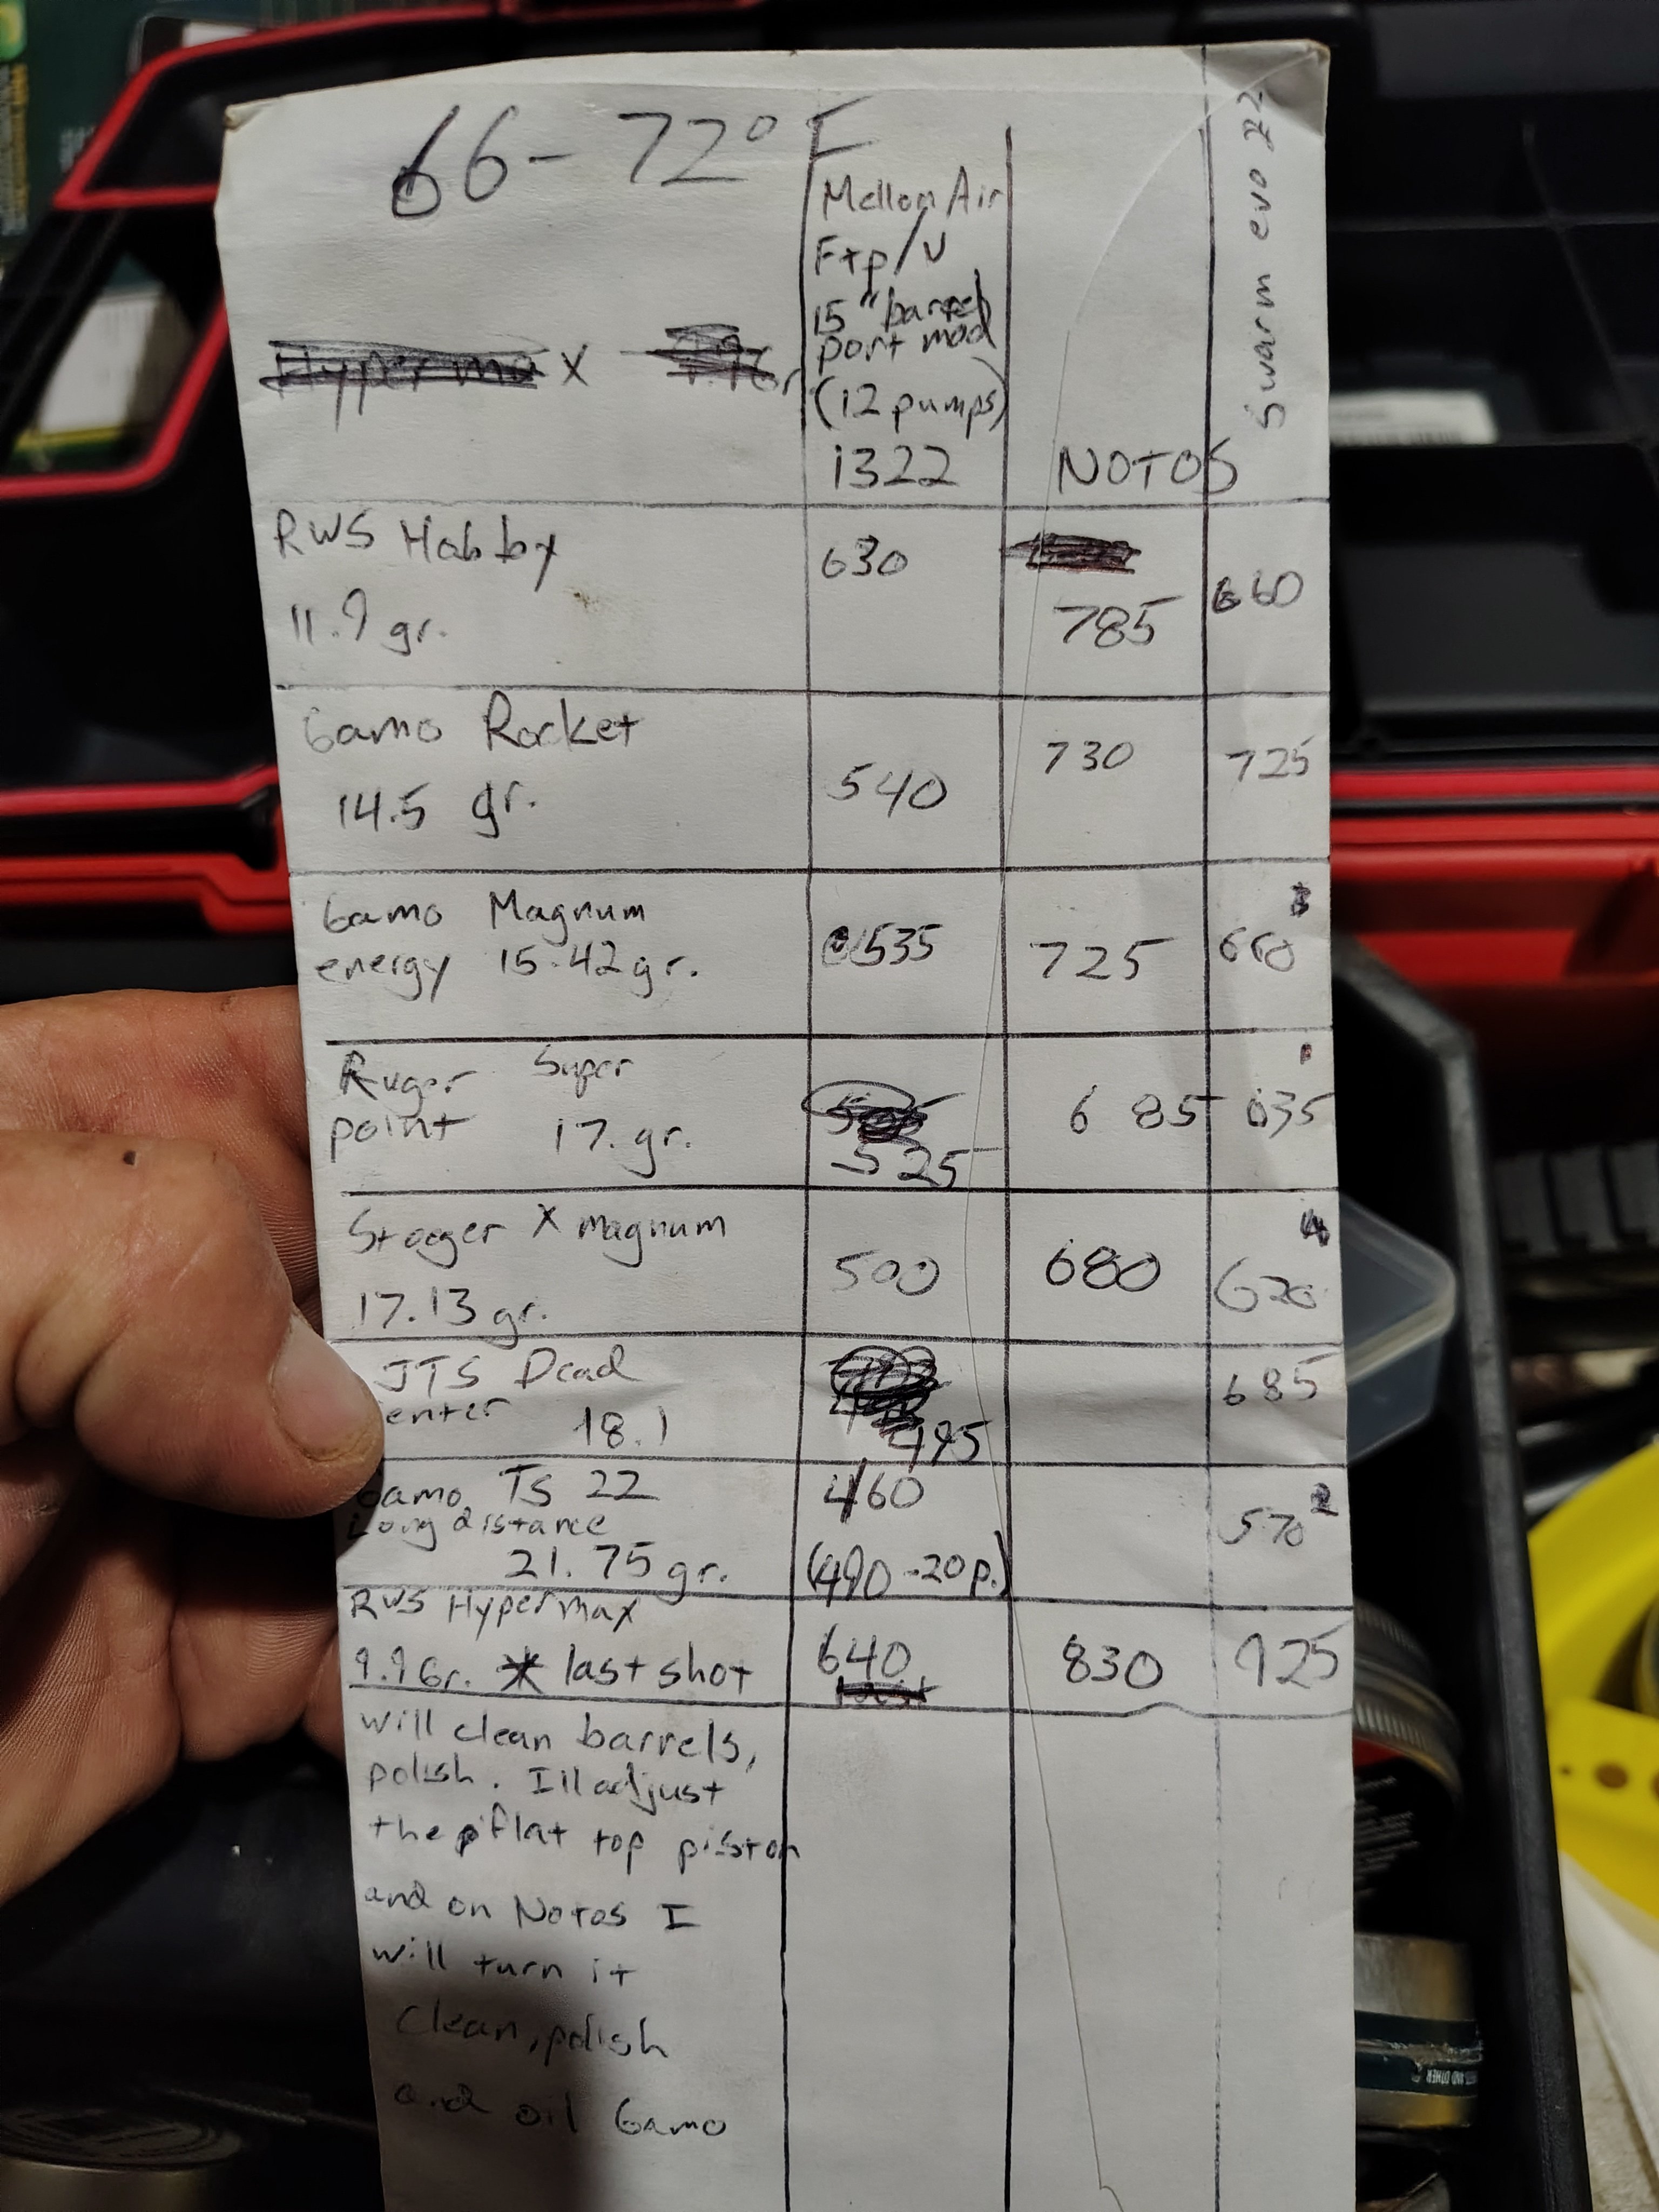 66-72° F
Mellon Air
Ftp/V
15" barrel
port mod
(12 pumps)
1322
NOTOS
Swarm evo 22
X
RWS Hobby
11.9 gr.
630
785
660
Gamo Rocket
14.5 gr.
540
730
725
Gamo Magnum
energy 15.42gr.
535
725
660
3
Ruger Super
point 17. gr.
525
685
635
1
Stoeger X magnum
17.13 gr.
500
680
620
4
JTS Dead
enter 18.1
495
685
Gamo TS 22
Long distance
21.75 gr.
460
(490-20p.)
570
2
RWS Hypermax
9.9Gr. * last shot
640
830
925
will clean barrels,
polish. Ill adjust
the flat top piston
and on Notos I
will turn it
Clean, polish
and oil Gamo
AND OTHER